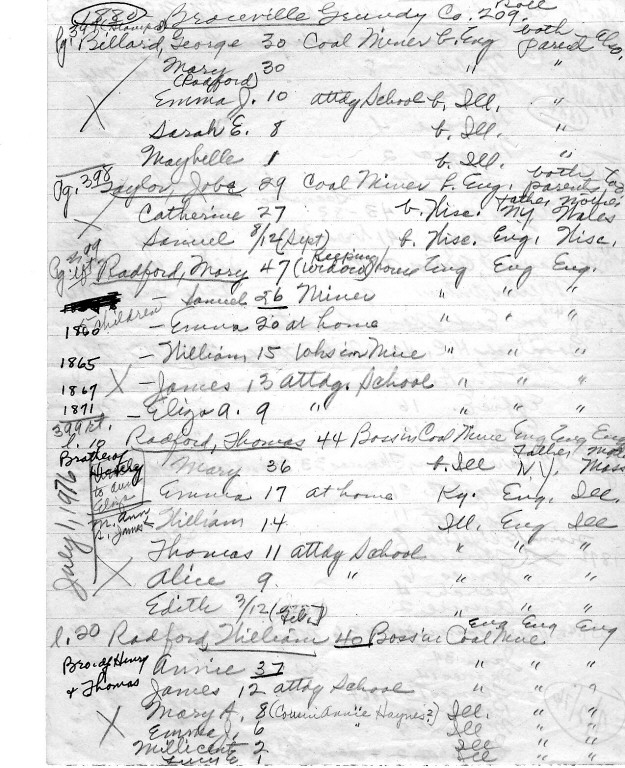 1880 Braceville Grundy Co. Roll 209.
Pg. 397 Billard, George 30 Coal Miner b. Eng both parents also.
Mary 30 " "
(Radford)
Emma J. 10 attdg School b. Ill. "
Sarah E. 8 b. Ill. "
Maybelle 1 b. Ill. "
Pg. 398 Taylor, Jobe 29 Coal Miner b. Eng. both parents too
Catherine 27 b. Wisc. father NY mother Wales
Samuel 8/12 (Sept) b. Wisc. Eng. Wisc.
Pg. Radford, Mary 47 (widow) Keeping house Eng Eng Eng.
- Samuel 26 Miner " " "
5 children
1860 - Emma 20 at home " " "
1865 - William 15 wks in Mine " " "
1867 - James 13 attdg. School " " "
1871 - Eliza A. 9 " " " "
399
l. 10 Radford, Thomas 44 Boss in Coal Mine Eng Eng Eng
Brother of Henry
Mary 36 b. Ill Father N.Y. Mother Mass
Emma 17 at home Ky. Eng. Ill.
William 14 Ill. Eng Ill
Thomas 11 attdg School " " "
July 1, 1976
Alice 9 " " " "
Edith 3/12 (Feb.) " " "
l. 20 Radford, William 40 Boss in Coal Mine Eng Eng Eng
Bro. of Henry & Thomas
Annie 37 " " "
James 12 attdg School " " "
Mary A. 8 (Cousin Annie Haynes?) Ill. " "
Emma J. 6 Ill. " "
Millicent 2 Ill " "
Lucy E. 1 Ill " "